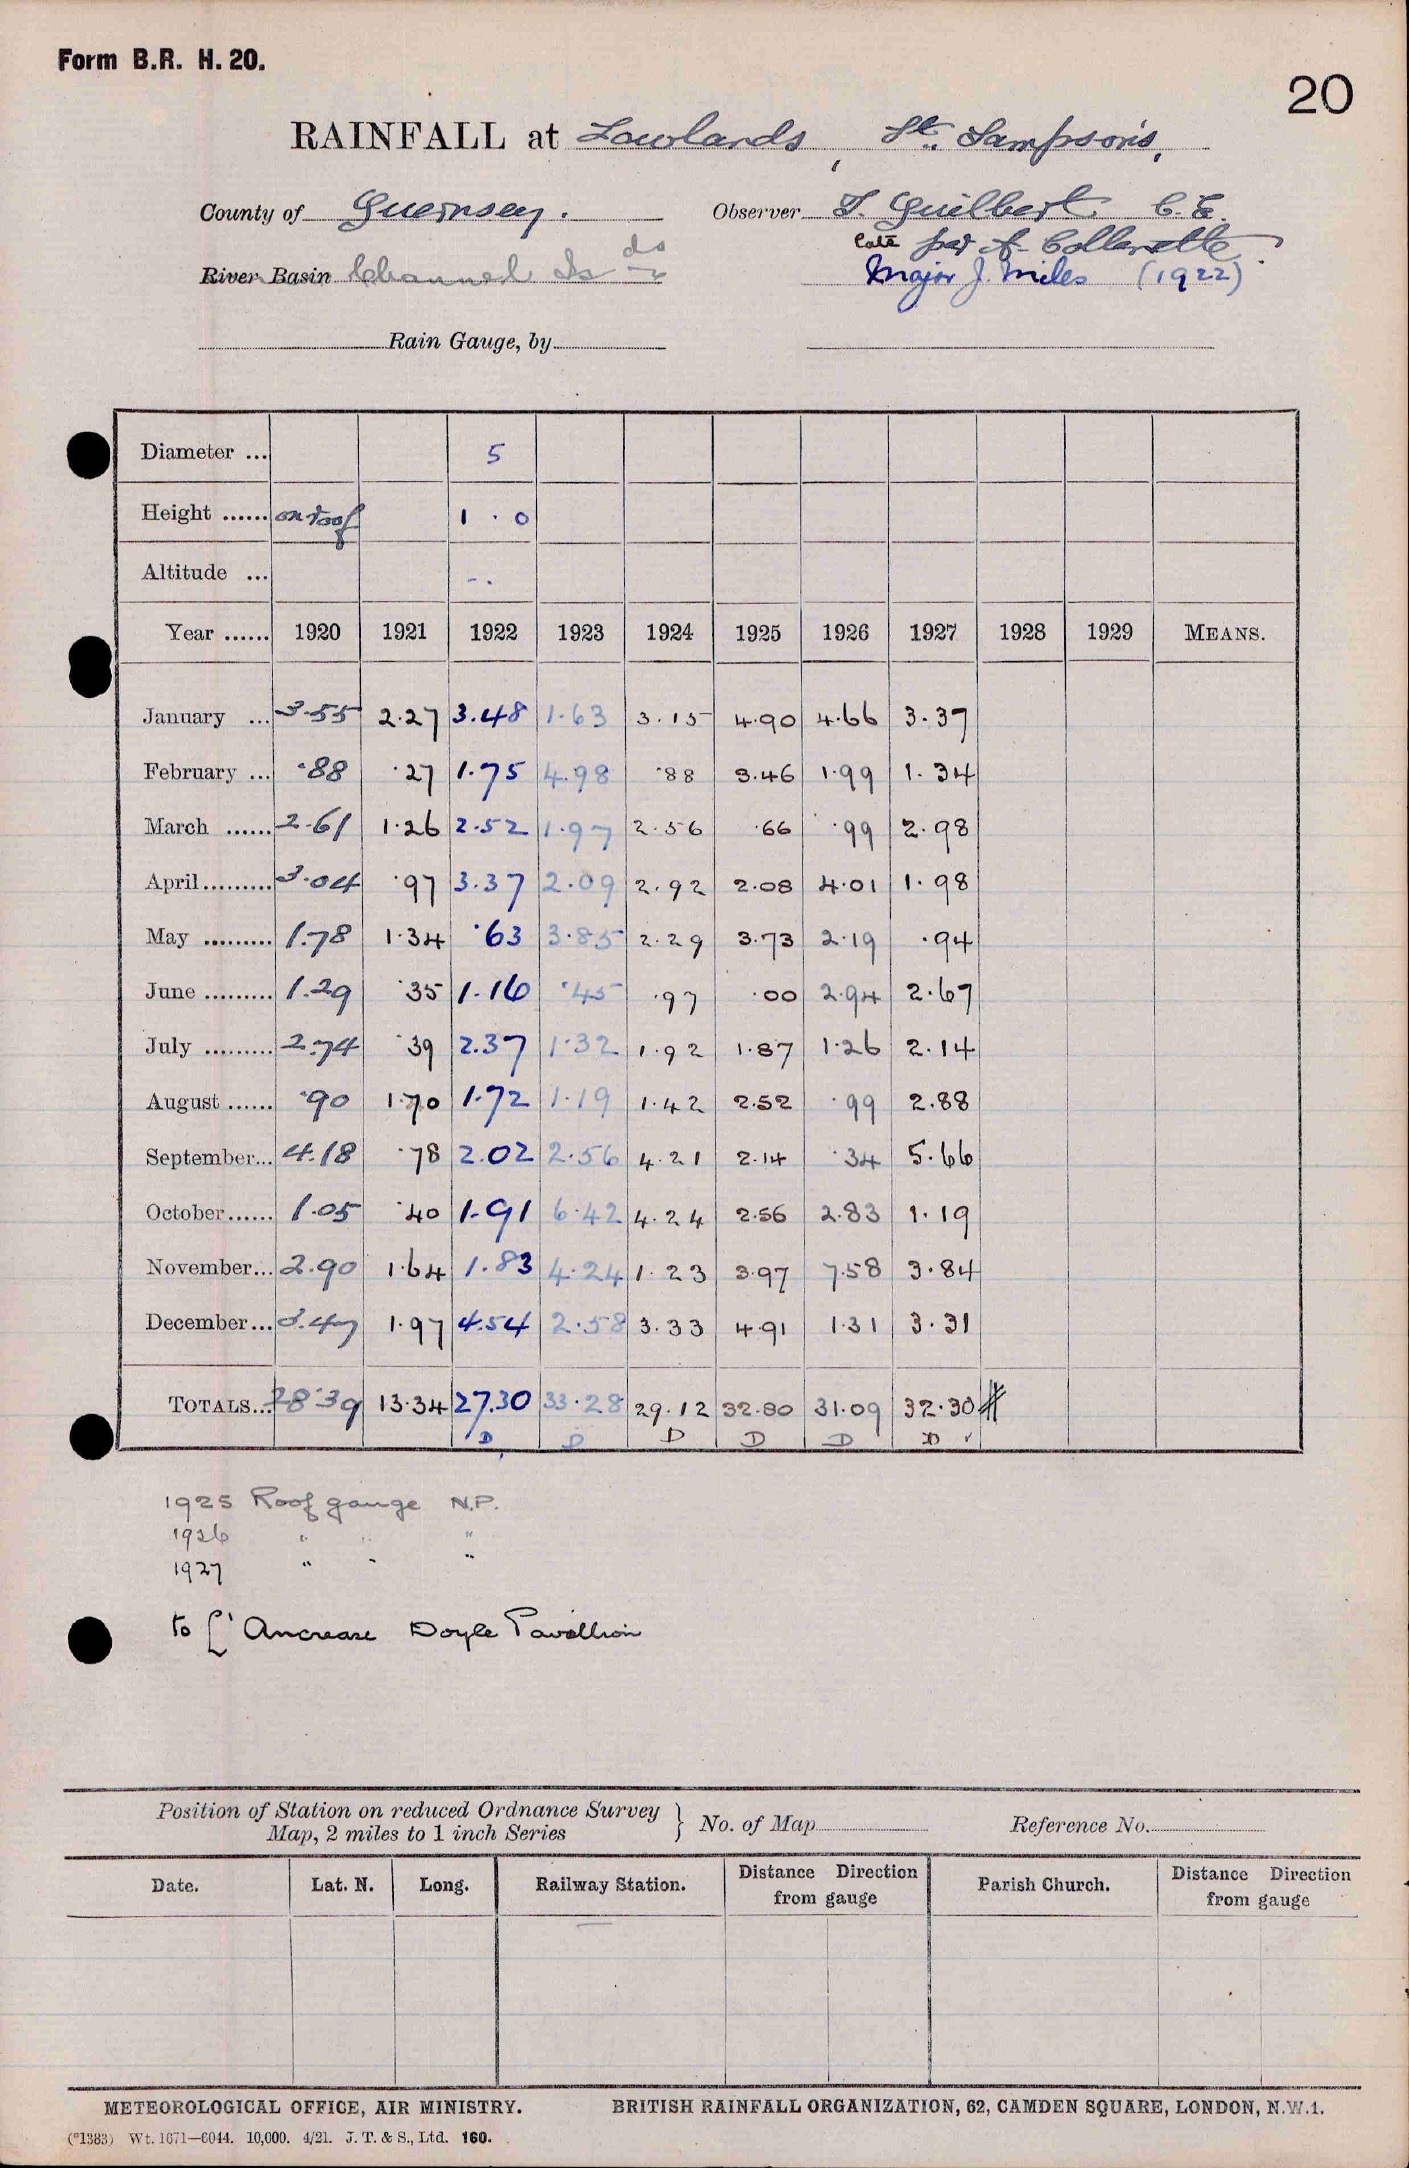 Form B.R. H. 20.
20
RAINFALL at Lowlands, St. Sampson's,
County of Guernsey. Observer T. Guilbert C.E.
late per A. Collenette
River Basin Channel Is do
Major J. Miles (1922)
Rain Gauge, by
Diameter ... 5
Height ...... on roof 1 . 0
Altitude ... - .
Year ...... 1920 1921 1922 1923 1924 1925 1926 1927 1928 1929 MEANS.
January ... 3.55 2.27 3.48 1.63 3.15 4.90 4.66 3.37
February ... .88 .27 1.75 4.98 .88 3.46 1.99 1.34
March ...... 2.61 1.26 2.52 1.97 2.56 .66 .99 2.98
April ......... 3.04 .97 3.37 2.09 2.92 2.08 4.01 1.98
May ......... 1.78 1.34 .63 3.85 2.29 3.73 2.19 .94
June ......... 1.29 .35 1.16 .45 .97 .00 2.94 2.67
July ......... 2.74 .39 2.37 1.32 1.92 1.87 1.26 2.14
August ...... .90 1.70 1.72 1.19 1.42 2.52 .99 2.88
September... 4.18 .78 2.02 2.56 4.21 2.14 .34 5.66
October...... 1.05 .40 1.91 6.42 4.24 2.56 2.83 1.19
November... 2.90 1.64 1.83 4.24 1.23 3.97 7.58 3.84
December... 3.47 1.97 4.54 2.58 3.33 4.91 1.31 3.31
TOTALS... 28.39 13.34 27.30 33.28 29.12 32.80 31.09 32.30
D D D D D D ✓
1925 Roof gauge N.P.
1926 " " "
1927 " " "
to L'Ancresse Doyle Pavillion
Position of Station on reduced Ordnance Survey
Map, 2 miles to 1 inch Series } No. of Map Reference No.
Date. Lat. N. Long. Railway Station. Distance Direction from gauge Parish Church. Distance Direction from gauge
METEOROLOGICAL OFFICE, AIR MINISTRY. BRITISH RAINFALL ORGANIZATION, 62, CAMDEN SQUARE, LONDON, N.W.1.
(*1383) Wt. 1671—6044. 10,000. 4/21. J. T. & S., Ltd. 160.